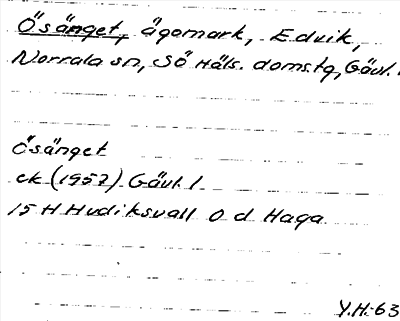 Ösänget, ägomark, Edvik,
Norrala sn, Sö Häls. domstg, Gävl. l
Ösänget
ek (1957) Gävl. l
15 H Hudiksvall 0 d Haga
Y.H.-63